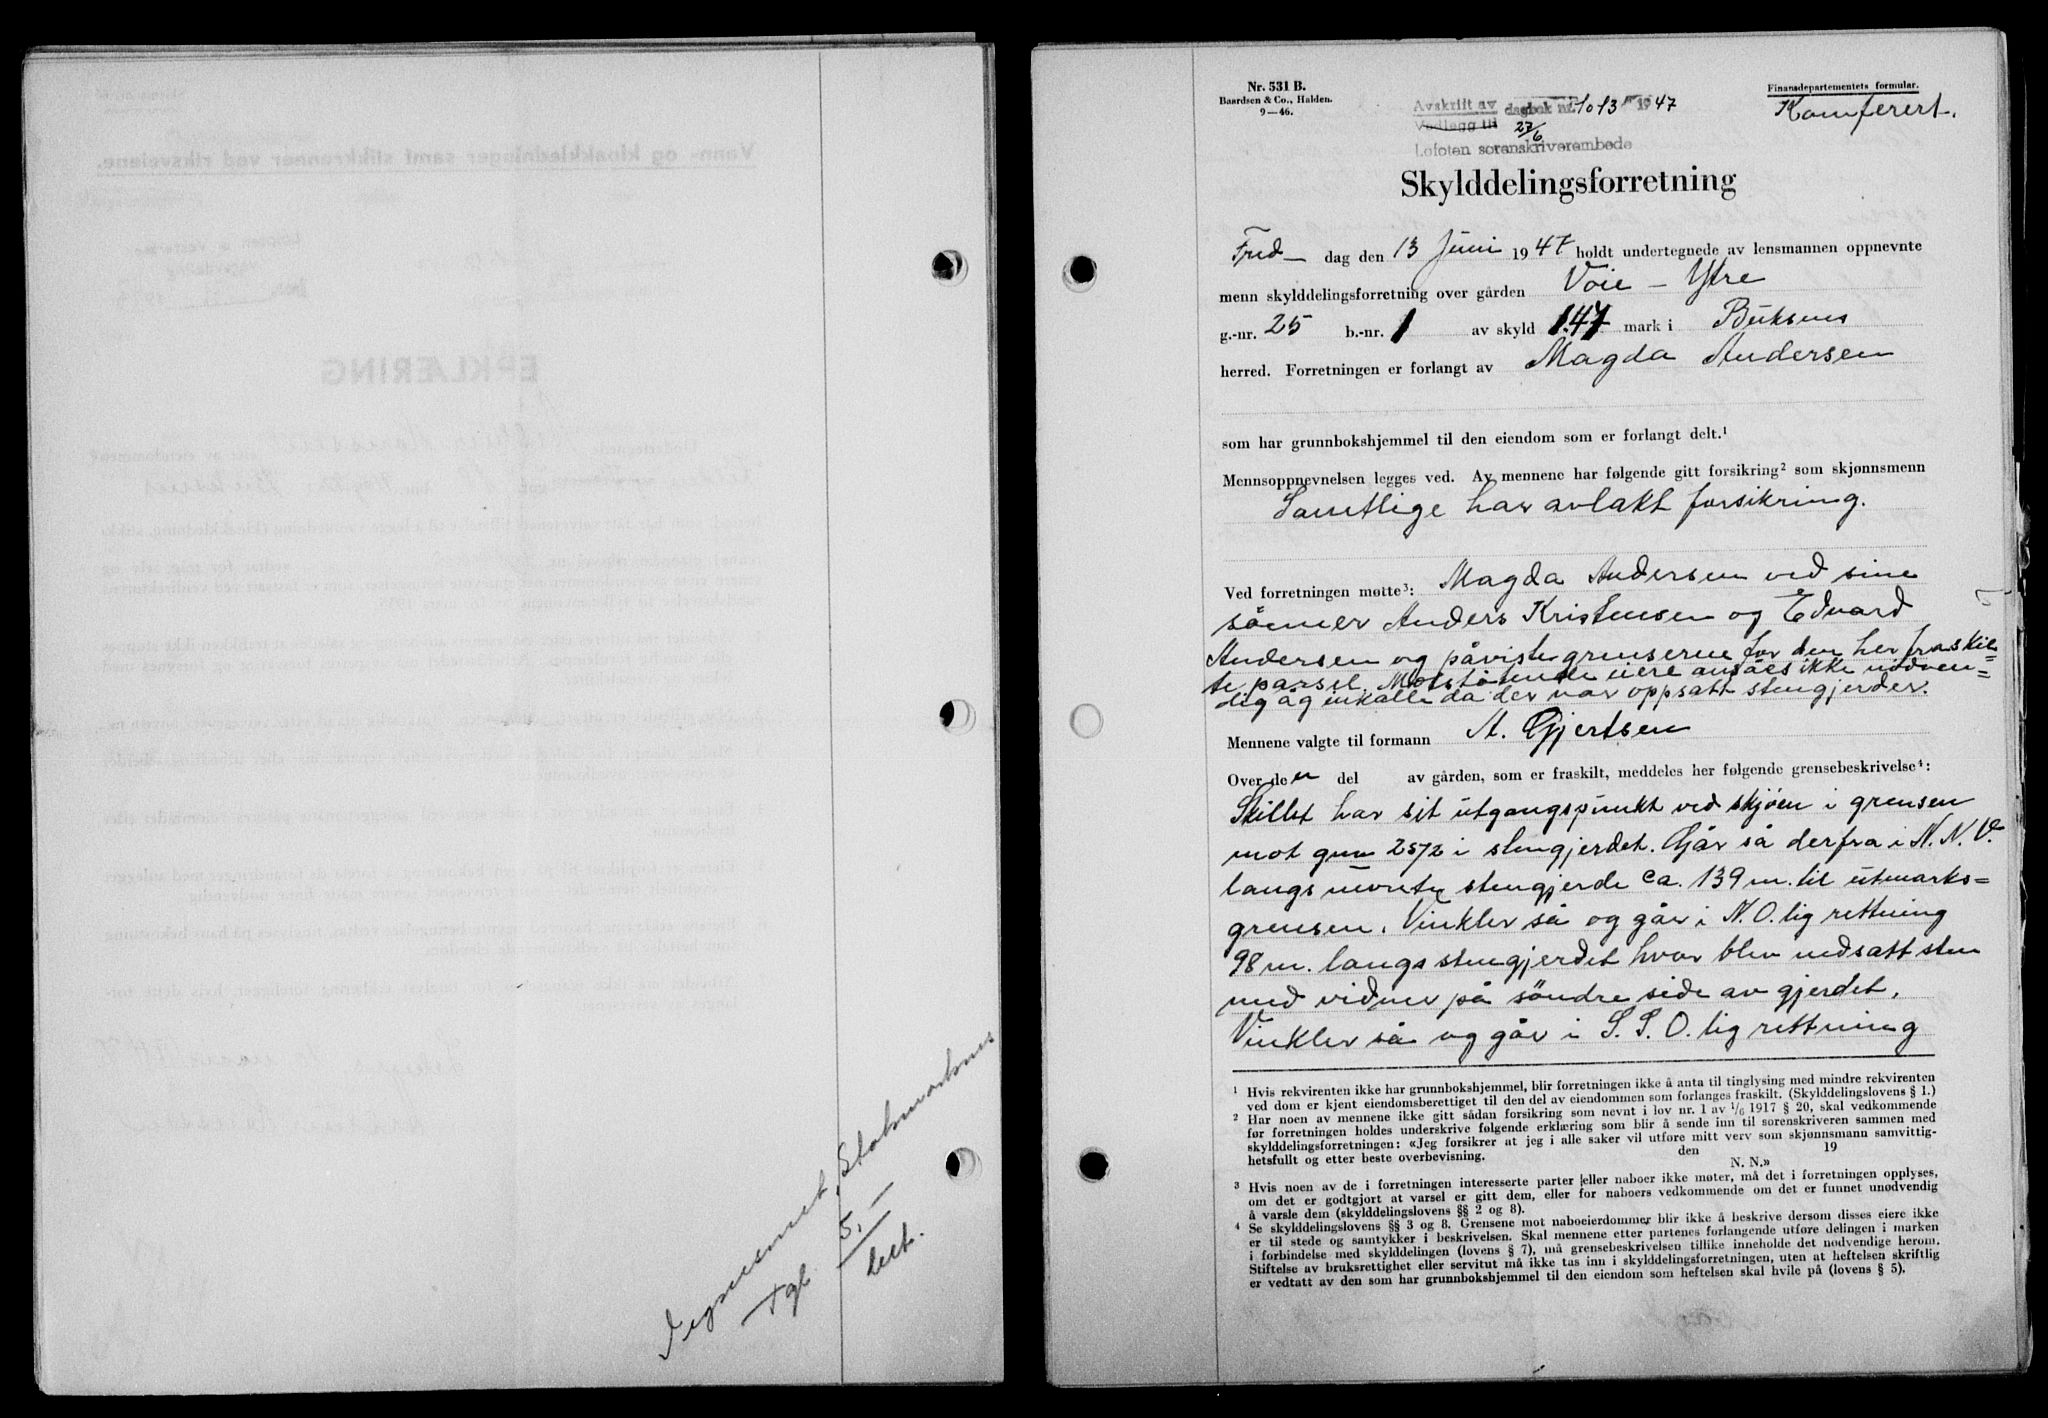 Vegvesenet, Stokmarknes
Tgl. 5,—
bet.
Nr. 531 B.
Baardsen & Co., Halden.
9—46.
Avskrift av dagbok nr. 1013 1947
Vedlegg til 27/6
Lofoten sorenskriverembede
Finansdepartementets formular.
Konferert.
Skylddelingsforretning
Fredag den 13 Juni 1947 holdt undertegnede av lensmannen oppnevnte
menn skylddelingsforretning over gården Voie - Ytre
g.-nr. 25 b.-nr. 1 av skyld 1.47 mark i Buksnes
herred. Forretningen er forlangt av Magda Andersen
som har grunnbokshjemmel til den eiendom som er forlangt delt.¹
Mennsoppnevnelsen legges ved. Av mennene har følgende gitt forsikring² som skjønnsmenn
Samtlige har avlakt forsikring.
Ved forretningen møtte³: Magda Andersen ved sine
sønner Anders Kristensen og Edvard
Andersen og påviste grensene for den her fraskil=
te parsel. Motstøtende eiere ansåes ikke nødven=
dig åg inkalle da der var oppsatt stengjerder.
Mennene valgte til formann A. Gjertsen
Over den del av gården, som er fraskilt, meddeles her følgende grensebeskrivelse⁴:
Skillet har sit utgangspunkt ved skjøen i grensen
mot gnr 25/2 i stengjerdet. Går så derfra i N.N.V.
langs stengjerde ca. 139 m. til utmarks=
grensen. Vinkler så og går i N.O.lig rettning
98 m. langs stengjerdet hvor blev nedsatt sten
med vidner på söndre side av gjerdet.
Vinkler så og går i S.S.O.lig rettning
¹ Hvis rekvirenten ikke har grunnbokshjemmel, blir forretningen ikke å anta til tinglysing med mindre rekvirenten
ved dom er kjent eiendomsberettiget til den del av eiendommen som forlanges fraskilt. (Skylddelingslovens § 1.)
² Har noen av mennene ikke gitt sådan forsikring som nevnt i lov nr. 1 av 1/6 1917 § 20, skal vedkommende
før forretningen holdes underskrive følgende erklæring som blir å sende inn til sorenskriveren sammen med
skylddelingsforretningen: «Jeg forsikrer at jeg i alle saker vil utføre mitt verv som skjønnsmann samvittig-
hetsfullt og etter beste overbevisning. den 19
N. N.»
³ Hvis noen av de i forretningen interesserte parter eller naboer ikke møter, må det i forretningen opplyses,
om det er godtgjort at varsel er gitt dem, eller for naboers vedkommende om det er funnet unødvendig
å varsle dem (skylddelingslovens §§ 2 og 8).
⁴ Se skylddelingslovens §§ 3 og 8. Grensene mot naboeiendommer blir ikke å beskrive dersom disses eiere ikke
er til stede og samtykker i beskrivelsen. Skal mennene etter partenes forlangende utføre delingen i marken
i forbindelse med skylddelingen (lovens § 7), må grensebeskrivelsen tillike inneholde det nødvendige herom.
Stiftelse av bruksrettighet eller servitut må ikke tas inn i skylddelingsforretningen, uten at heftelsen skriftlig
er vedtatt av den som har grunnbokshjemmel til den eiendom som heftelsen skal hvile på (lovens § 5).